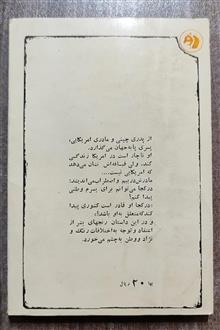 از پدری چینی و مادری امریکایی،
پسری پا به جهان می‌گذارد.
او ناچار است در امریکا زندگی
کند. ولی قیافه‌اش نشان می‌دهد
که امریکایی نیست....
مادرش در بیم و اضطراب می‌اندیشد:
درکجا می‌توانم برای پسرم وطنی
پیدا کنم؟
«درکجا او قادر است کشوری پیدا
کند که متعلق به او باشد؟»
و در این داستان رنجهای بشر از
اعتقاد و توجه به اختلافات رنگ و
نژاد و وطن به چشم می‌خورد.
بها ۲۰ ریال